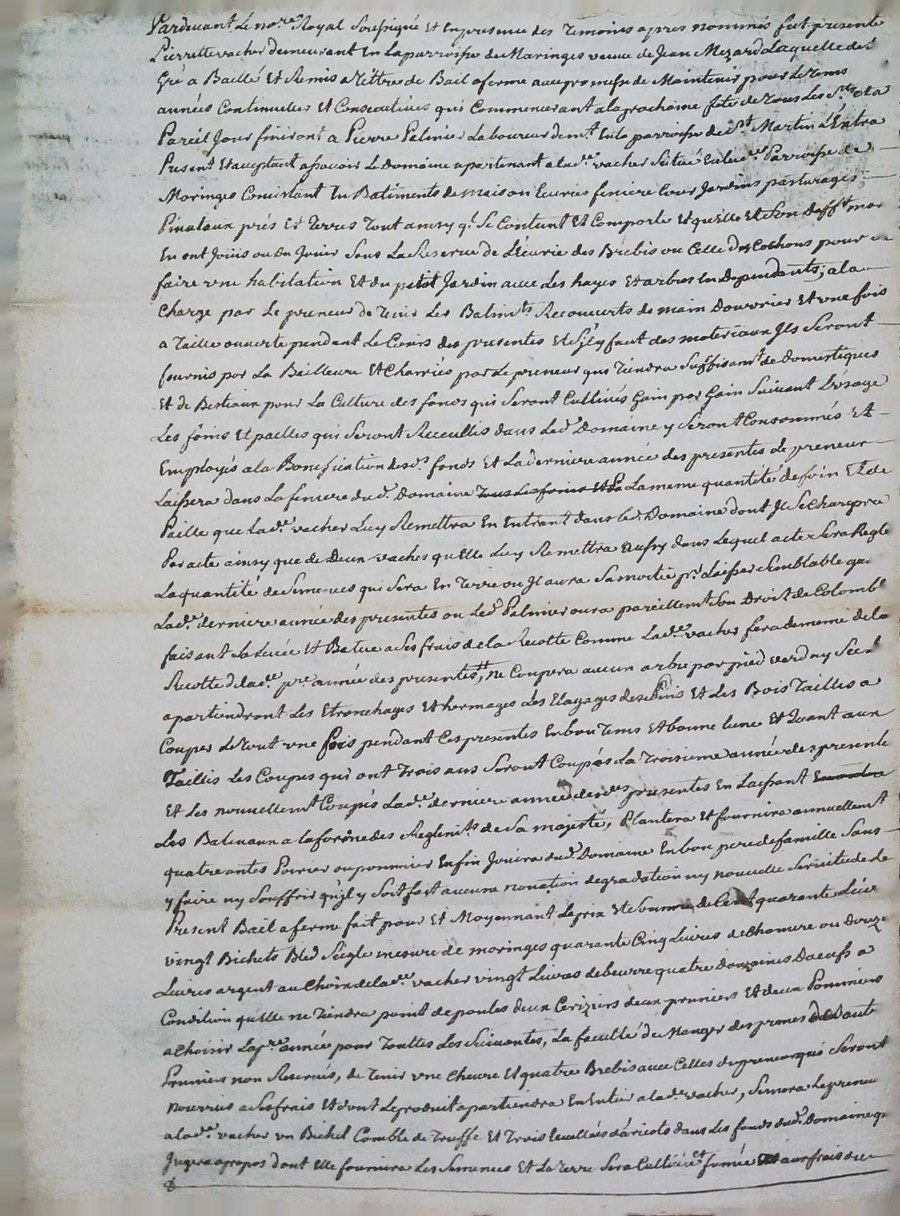 Pardevant Le no.re Royal Soussigné et En presence des Temoins apres nommés fut presente
Pierrette vacher demeurant En La parroisse de Maringes veuve de Jean Mezard Laquelle de
Gré a Baillé et Remis a tittre de Bail a ferme avec promesse de Maintenir pour Le tems
années Continuelles et Consecutives qui Commenceront a La prochaine fête de Tous Les S.ts et a
Pareil Jour finiront a Pierre Palmier Laboureur dem.t En la parroisse de S.t Martin
Present et acceptant assavoir Le Domaine apartenant a lad.e vacher Situé En lad.e Parroisse de
Moringes Consistant En Batiments de maison Ecuries feniere Cour Jardins pasturages
Pinataux prés et Terres Tout ainsy q.l Se Contient et Comporte et qu'elle et Son deff.t mari
En ont Joüis ou dû Jouir Sous La Reserve de L'ecurie des Brebis ou Celle des Cochons pour
faire une habitation et du petit Jardin avec Les hayes et arbres En Dependants; a la
Charge par Le preneur de Tenir Les Batim.ts Recouverts de main D'ouvrier et une fois
a Taille ouverte pendant Le Cours des presentes et S'il y faut des materiaux Ils Seront
fournis par La Bailleure et Charriés par Le preneur qui Tiendra Suffisam.t de Domestiques
Et de Bestiaux pour La Culture des fonds qui Seront Cultivés Gain par Gain Suivant L'usage
Les foins et pailles qui Seront Receuillis dans Led. Domaine y Seront Consommés et
Employés a la Bonification desd.s fonds et La derniere année des presentes Le preneur
Laissera dans La feniere dud. Domaine Tous Les foins et Pa La meme quantité de foin et de
Paille que Lad.e vacher Luy Remettra En Entrant dans led. Domaine dont Il Se Chargera
Par acte ainsy que de Deux vaches qu'elle Luy Remettra aussy dans Lequel acte Sera Reglé
La quantité de Semences qui Sera En Terre ou Il aura Sa moitié p.r Laisser Semblable
Lad.e derniere année des presentes ou Led. Palmier aura pareillement Son Droit de Colomb
faisant La Levée et Batue a Ses frais de la Recolte Comme Lad.e vacher fera de meme de la
Recolte de lad.e pr.e année des presentes, ne Coupera aucun arbre par pied verd ny Sec
apartiendront Les Etronchages et hermages Les Elagages des Pins et Les Bois Taillés a
Couper Le tout une fois pendant Ces presentes En bon Tems et bonne lune et Quant aux
Taillis Les Coupes qui ont Trois ans Seront Coupés La Troisieme année des presente
Et Les nouvellem.t Coupés Lad.e derniere année desd.es presentes En Laissant
Les Balivaux a la forme des Reglem.ts de Sa majesté, Plantera et fournira annuellem.t
quatre antes Poirier ou pommier Enfin Jouira dud. Domaine En bon pere de famille Sans
y faire ny Souffrir qu'il y Soit fait aucune novation degradation ny nouvelle Servitude Le
Present Bail a ferme fait pour et Moyennant Le prix et Somme de Cent quarante Livres
vingt Bichets Bled Seigle mesure de moringes quarante Cinq Livres de Chanvre ou douze
Livres argent au Choix de lad.e vacher vingt Livres de beurre quatre Douzaines D'oeufs a
Condition qu'elle ne Tiendra point de poules deux Cerizers deux pruniers et deux Pommiers
a Choisir La pr.e année pour Touttes Les Suivantes, La faculté de Manger des prunes
Pruniers non Reservés, de Tenir une Chevre et quatre Brebis avec Celles du preneur qui Seront
nourris a Ses frais et dont Le produit apartiendra En Entier a lad.e vacher, Semera Le preneur
a lad.e vacher un Bichet Comble de Truffe et Trois d'aricots dans Les fonds dud. Domaine
Jugera apropos dont Elle fournira Les Semences et La Terre Sera Cultivée et fumée aux frais du